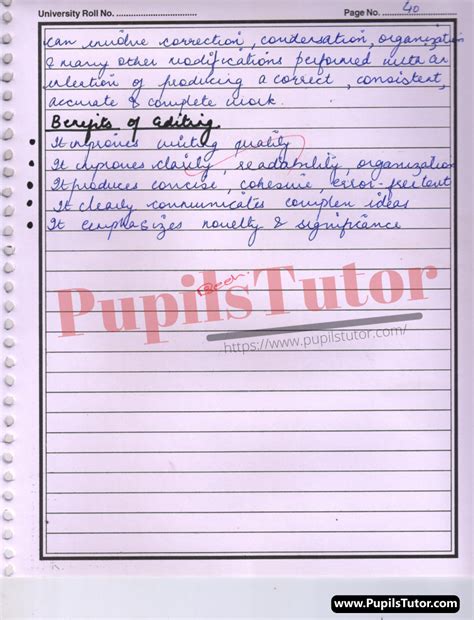 University Roll No. Page No. 40
can involve correction, condensation, organization
& many other modifications performed with an
intention of producing a correct, consistent,
accurate & complete work.
Benefits of Editing
• It improves writing quality
• It improves clarity, readability, organization
• It produces concise, cohesive, error-free text
• It clearly communicates complex ideas
• It emphasizes novelty & significance
PupilsTutor
https://www.pupilstutor.com/
www.PupilsTutor.com